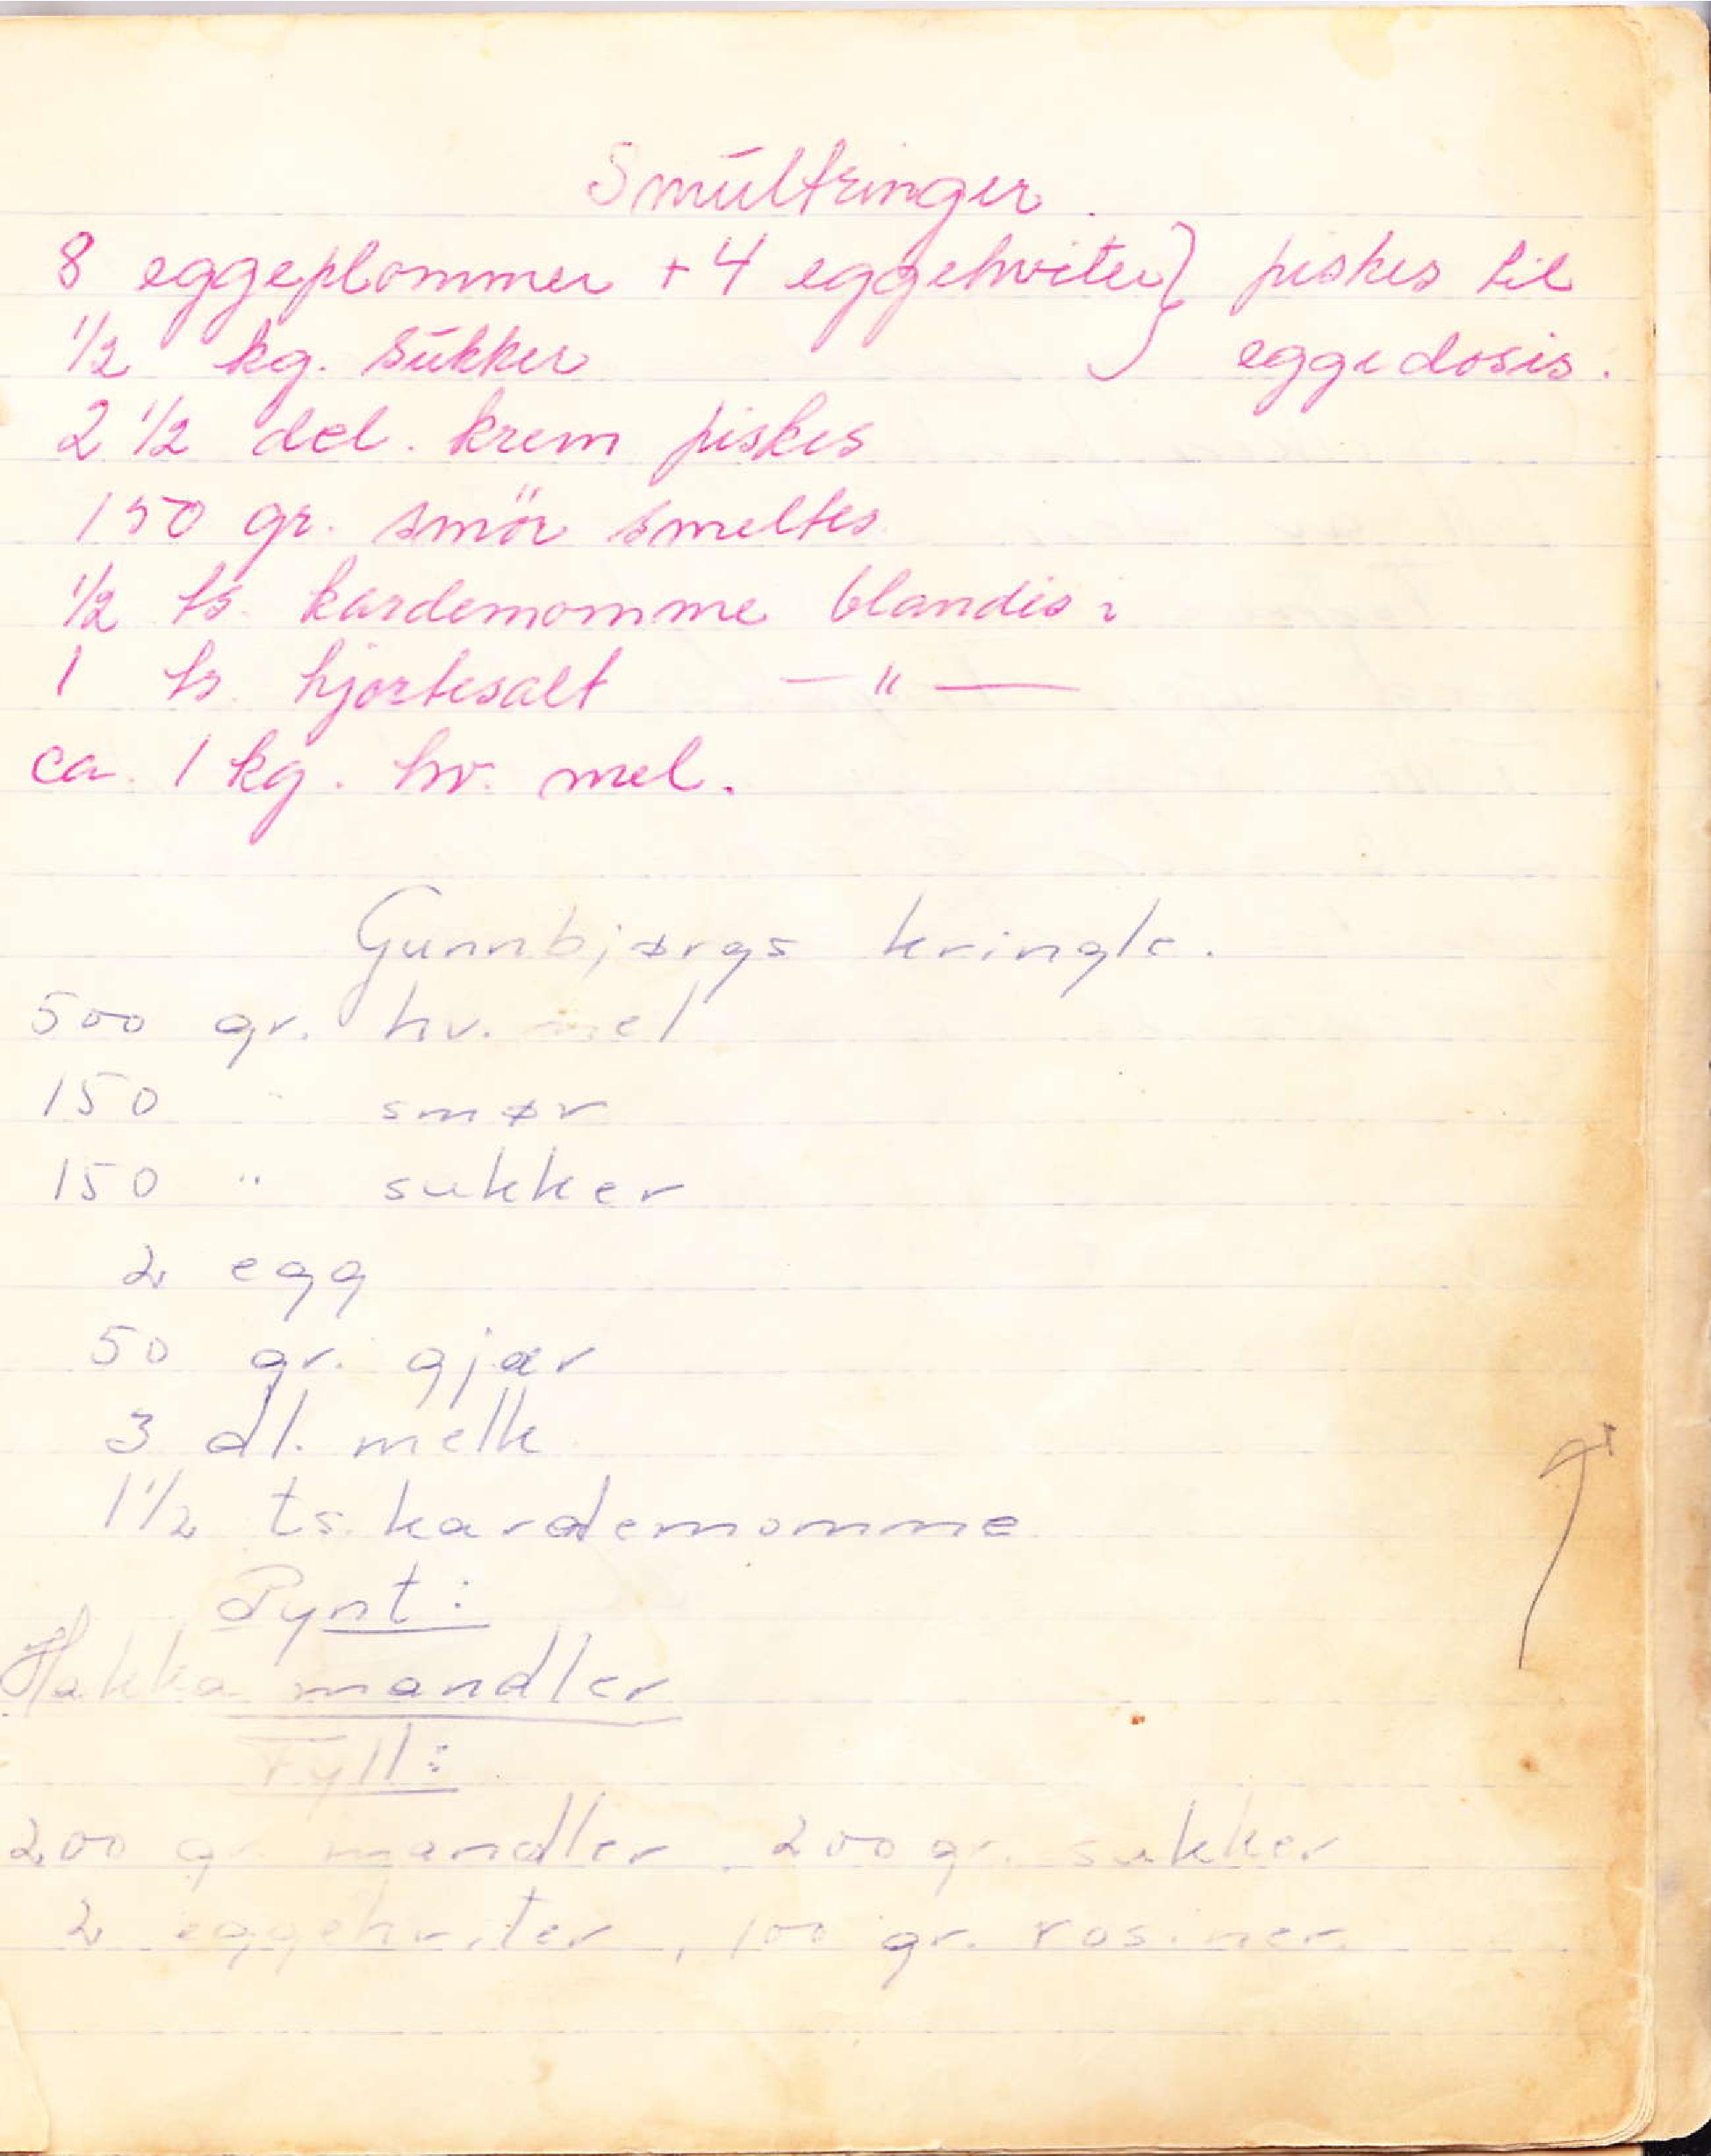 Smultringer.
8 eggeplommer + 4 eggehviter } piskes til
1/2 kg. sukker } eggedosis.
2 1/2 del. krem piskes
150 gr. smör smeltes
1/2 ts. kardemomme blandes i
1 ts. hjortesalt — " —
ca. 1 kg. hv. mel.
Gunnbjørgs kringle.
500 gr. hv. mel
150 " smør
150 " sukker
2 egg
50 gr. gjær
3 dl. melk
1 1/2 ts. kardemomme
Pynt:
Hakka mandler
Fyll:
200 gr. mandler, 200 gr. sukker
2 eggehviter, 100 gr. rosiner.